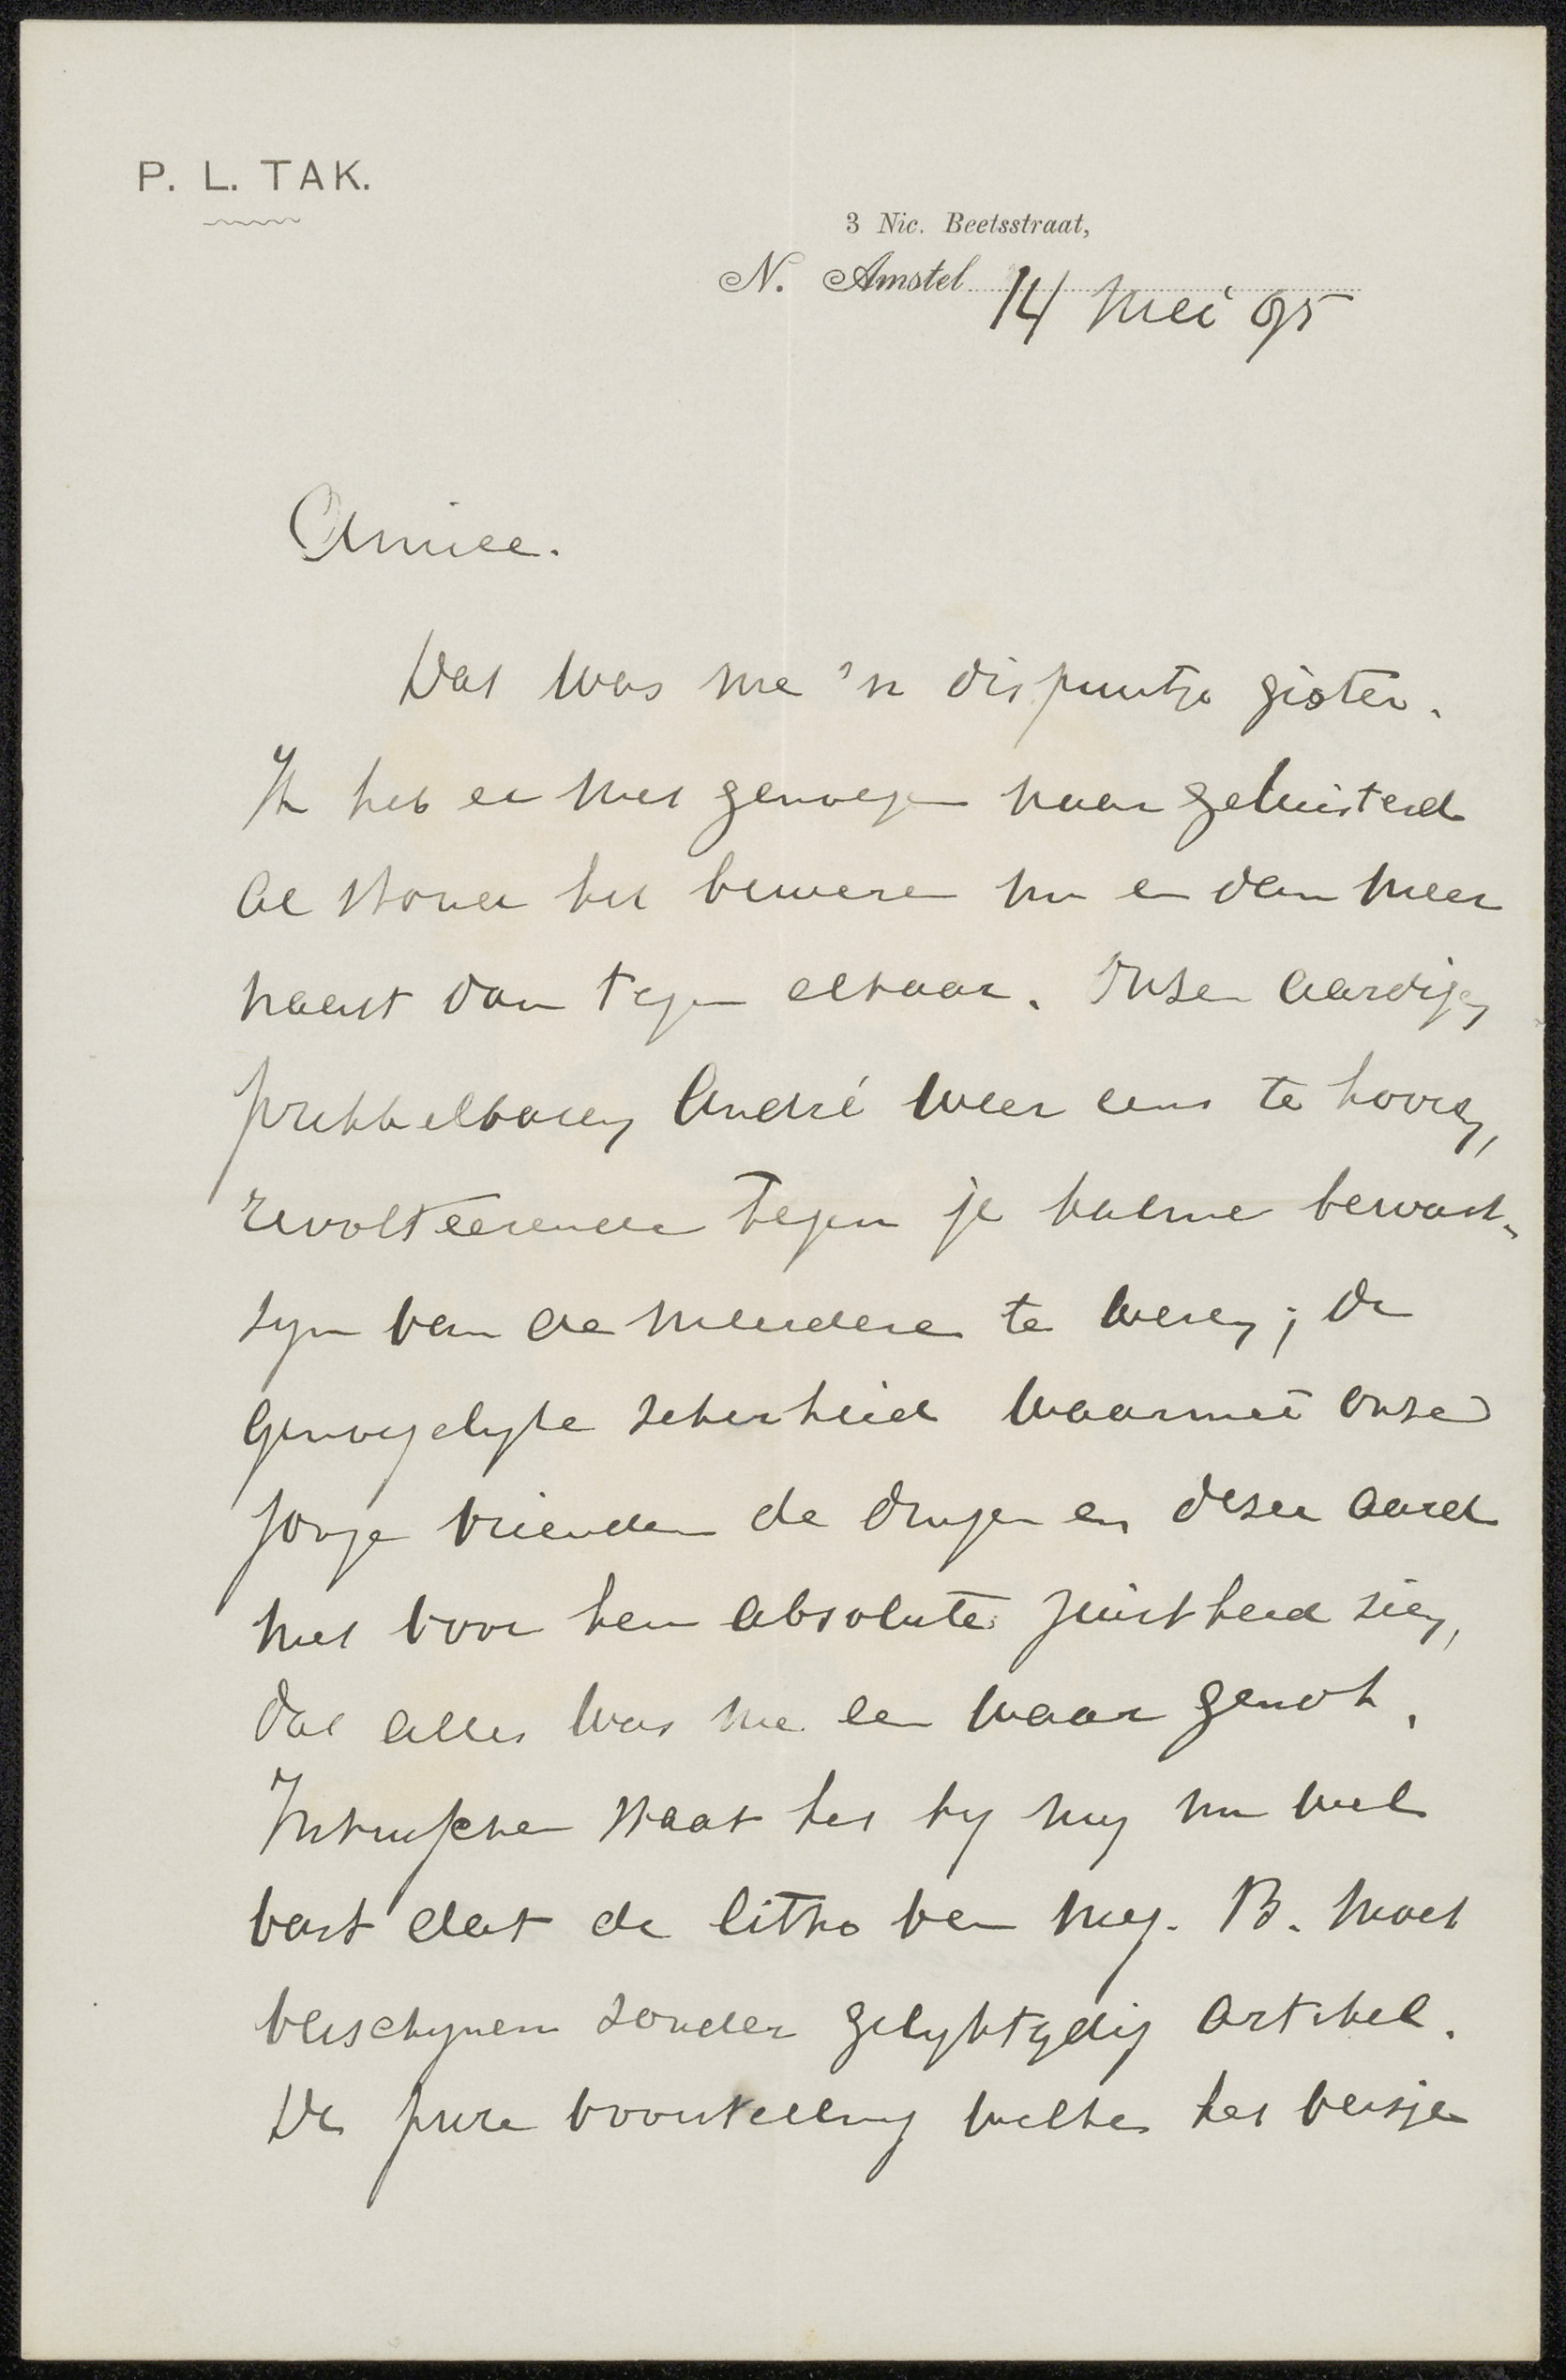 P. L. TAK.
3 Nic. Beetsstraat,
N. Amstel 14 Mei 95
Amice.
Dat was me 'n dispuutje gister.
Ik heb er met genoegen naar geluisterd
al stond het beweren nu en dan meer
naast dan tegen elkaar. Onzen aardigen
prikkelbaren André weer eens te hooren,
revolteerende tegen je kalme bewust-
zyn van de meerdere te wezen; de
genoegelyke zekerheid waarmeê onze
jonge vrienden de dingen en dezer aard
met voor hen absolute juistheid zien,
dat alles was me een waar genot.
Intusschen staat het by my nu wel
vast dat de litho van mej. B. moet
verschynen zonder gelyktydig artikel.
De pure voorstelling welke het versje